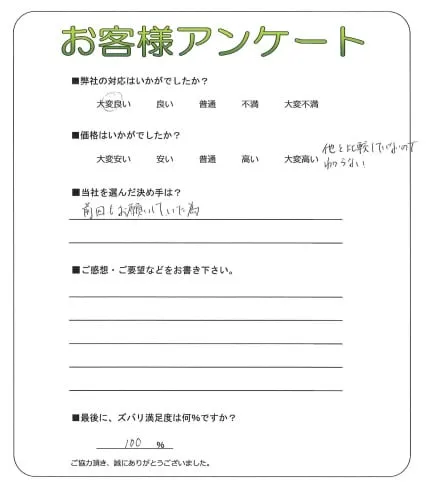 お客様アンケート
■弊社の対応はいかがでしたか？
大変良い　良い　普通　不満　大変不満
■価格はいかがでしたか？
大変安い　安い　普通　高い　大変高い
他と比較していないので
わからない
■当社を選んだ決め手は？
前回もお願いしていた為
■ご感想・ご要望などをお書き下さい。
■最後に、ズバリ満足度は何%ですか？
100 %
ご協力頂き、誠にありがとうございました。